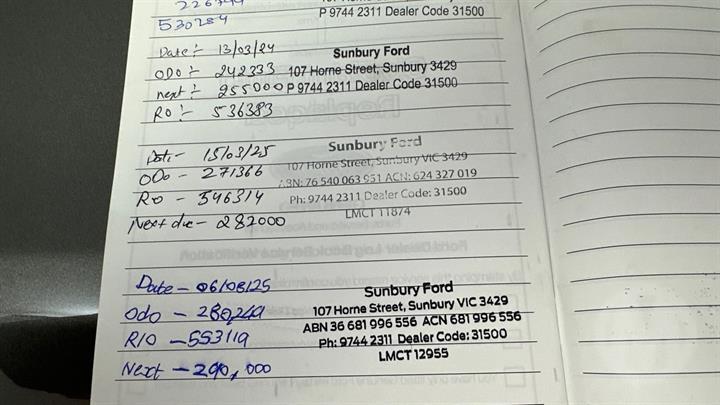 530284
P 9744 2311 Dealer Code 31500
Date:- 13/03/24
ODO:- 242333
next:- 255000
RO:- 536383
Sunbury Ford
107 Horne Street, Sunbury 3429
P 9744 2311 Dealer Code 31500
Date- 15/03/25
ODo- 271366
Ro - 546314
Next due- 282000
Sunbury Ford
107 Horne Street, Sunbury VIC 3429
ABN: 76 540 063 951 ACN: 624 327 019
Ph: 9744 2311 Dealer Code: 31500
LMCT 11874
Date - 06/08/25
Odo - 280249
R/O - 553119
Next - 290,000
Sunbury Ford
107 Horne Street, Sunbury VIC 3429
ABN 36 681 996 556 ACN 681 996 556
Ph: 9744 2311 Dealer Code: 31500
LMCT 12955